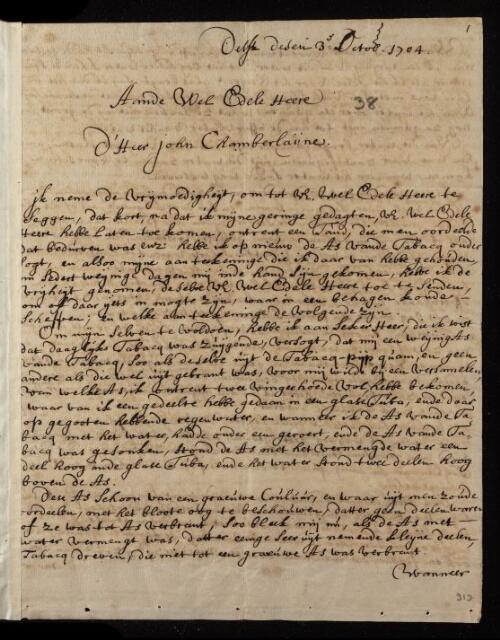 1
Delft desen 3e Octob 1704.
Aande Wel Edele Heere
38
D'Heer John Chamberlaijne.
jk neme de vrijmoedigheijt, om tot UE. Wel Edele Heere te
seggen, dat kort, na dat ik mijne geringe gedagten, UE. Wel Edele
Heere hebbe laten toe komen, ontrent een wond, die men oordeelde
dat bedurven was enz hebbe ik op nieuw de As vande Tabacq onder
sogt, en alsoo mijne aanteekeninge die ik daar van hebbe gehouden
in sedert weijnige dagen mij inde hand sijn gekomen, hebbe ik de
vrijheijt genomen, deselve UE. Wel Edele Heere toe te senden,
om of daar jets in mogte zijn, waar in een behagen konde
scheppen; en welke aanteekeninge de volgende zijn.
Om mijn selven te voldoen, hebbe ik aan seker Heer, die ik wist
dat dagelijks Tabacq was zuijgende, versogt, dat mij een weijnig As
vande Tabacq, soo als deselve uijt de Tabacq-pijp quam, en geen
andere als die wel uijt gebrant was, voor mij wilde bij een versamelen,
van welke As, ik ontrent twee vingerhoede vol hebbe bekomen,
waar van ik een gedeelte hebbe gedaan in een glase Tuba, ende daar
op gegooten hebbende regenwater, en wanneer ik de As vande Ta-
bacq met het water, hadde onder een geroert, ende de As vande Ta-
bacq was gesonken, stond de As met het vermengde water een
deel hoog inde glase Tuba, ende het water stond twee deelen hoog
boven de As.
Dese As schoon van een graeuwe Couluur, en waar uijt men zoude
oordeelen, met het bloote oog te beschouwen, datter geen deelen waren
of ze was tot As verbrant; soo bleek mij nu, als de As met
water vermengt was, datter eenige seer uijt nemende kleijne deelen,
Tabacq dreven, die niet tot een graeuwe As was verbrant.
Wanneer
313